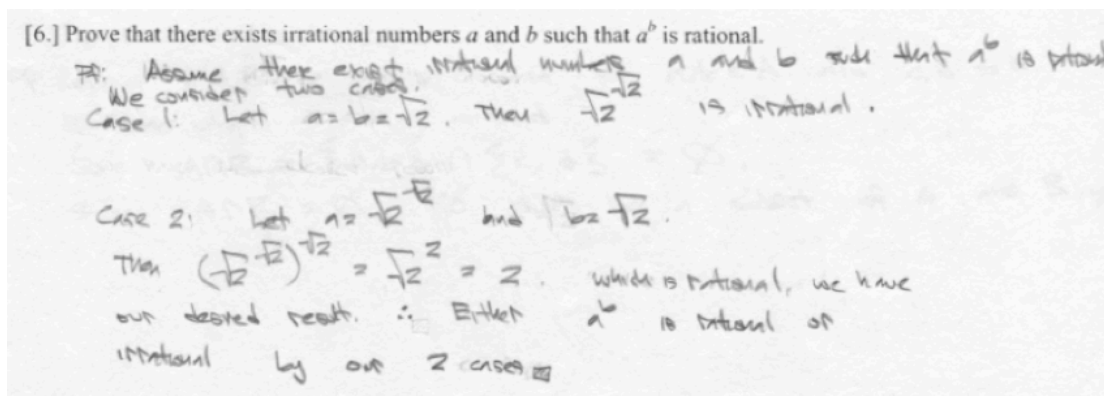 [6.] Prove that there exists irrational numbers a and b such that a^b is rational.
Pf: Assume there exist irrational numbers a and b such that a^b is rational
We consider two cases.
Case 1: Let a = b = √2. Then √2^√2 is irrational.
Case 2: Let a = √2^√2 and b = √2.
Then (√2^√2)^√2 = √2^2 = 2. which is rational, we have
our desired result. ∴ Either a^b is rational or
irrational by our 2 cases